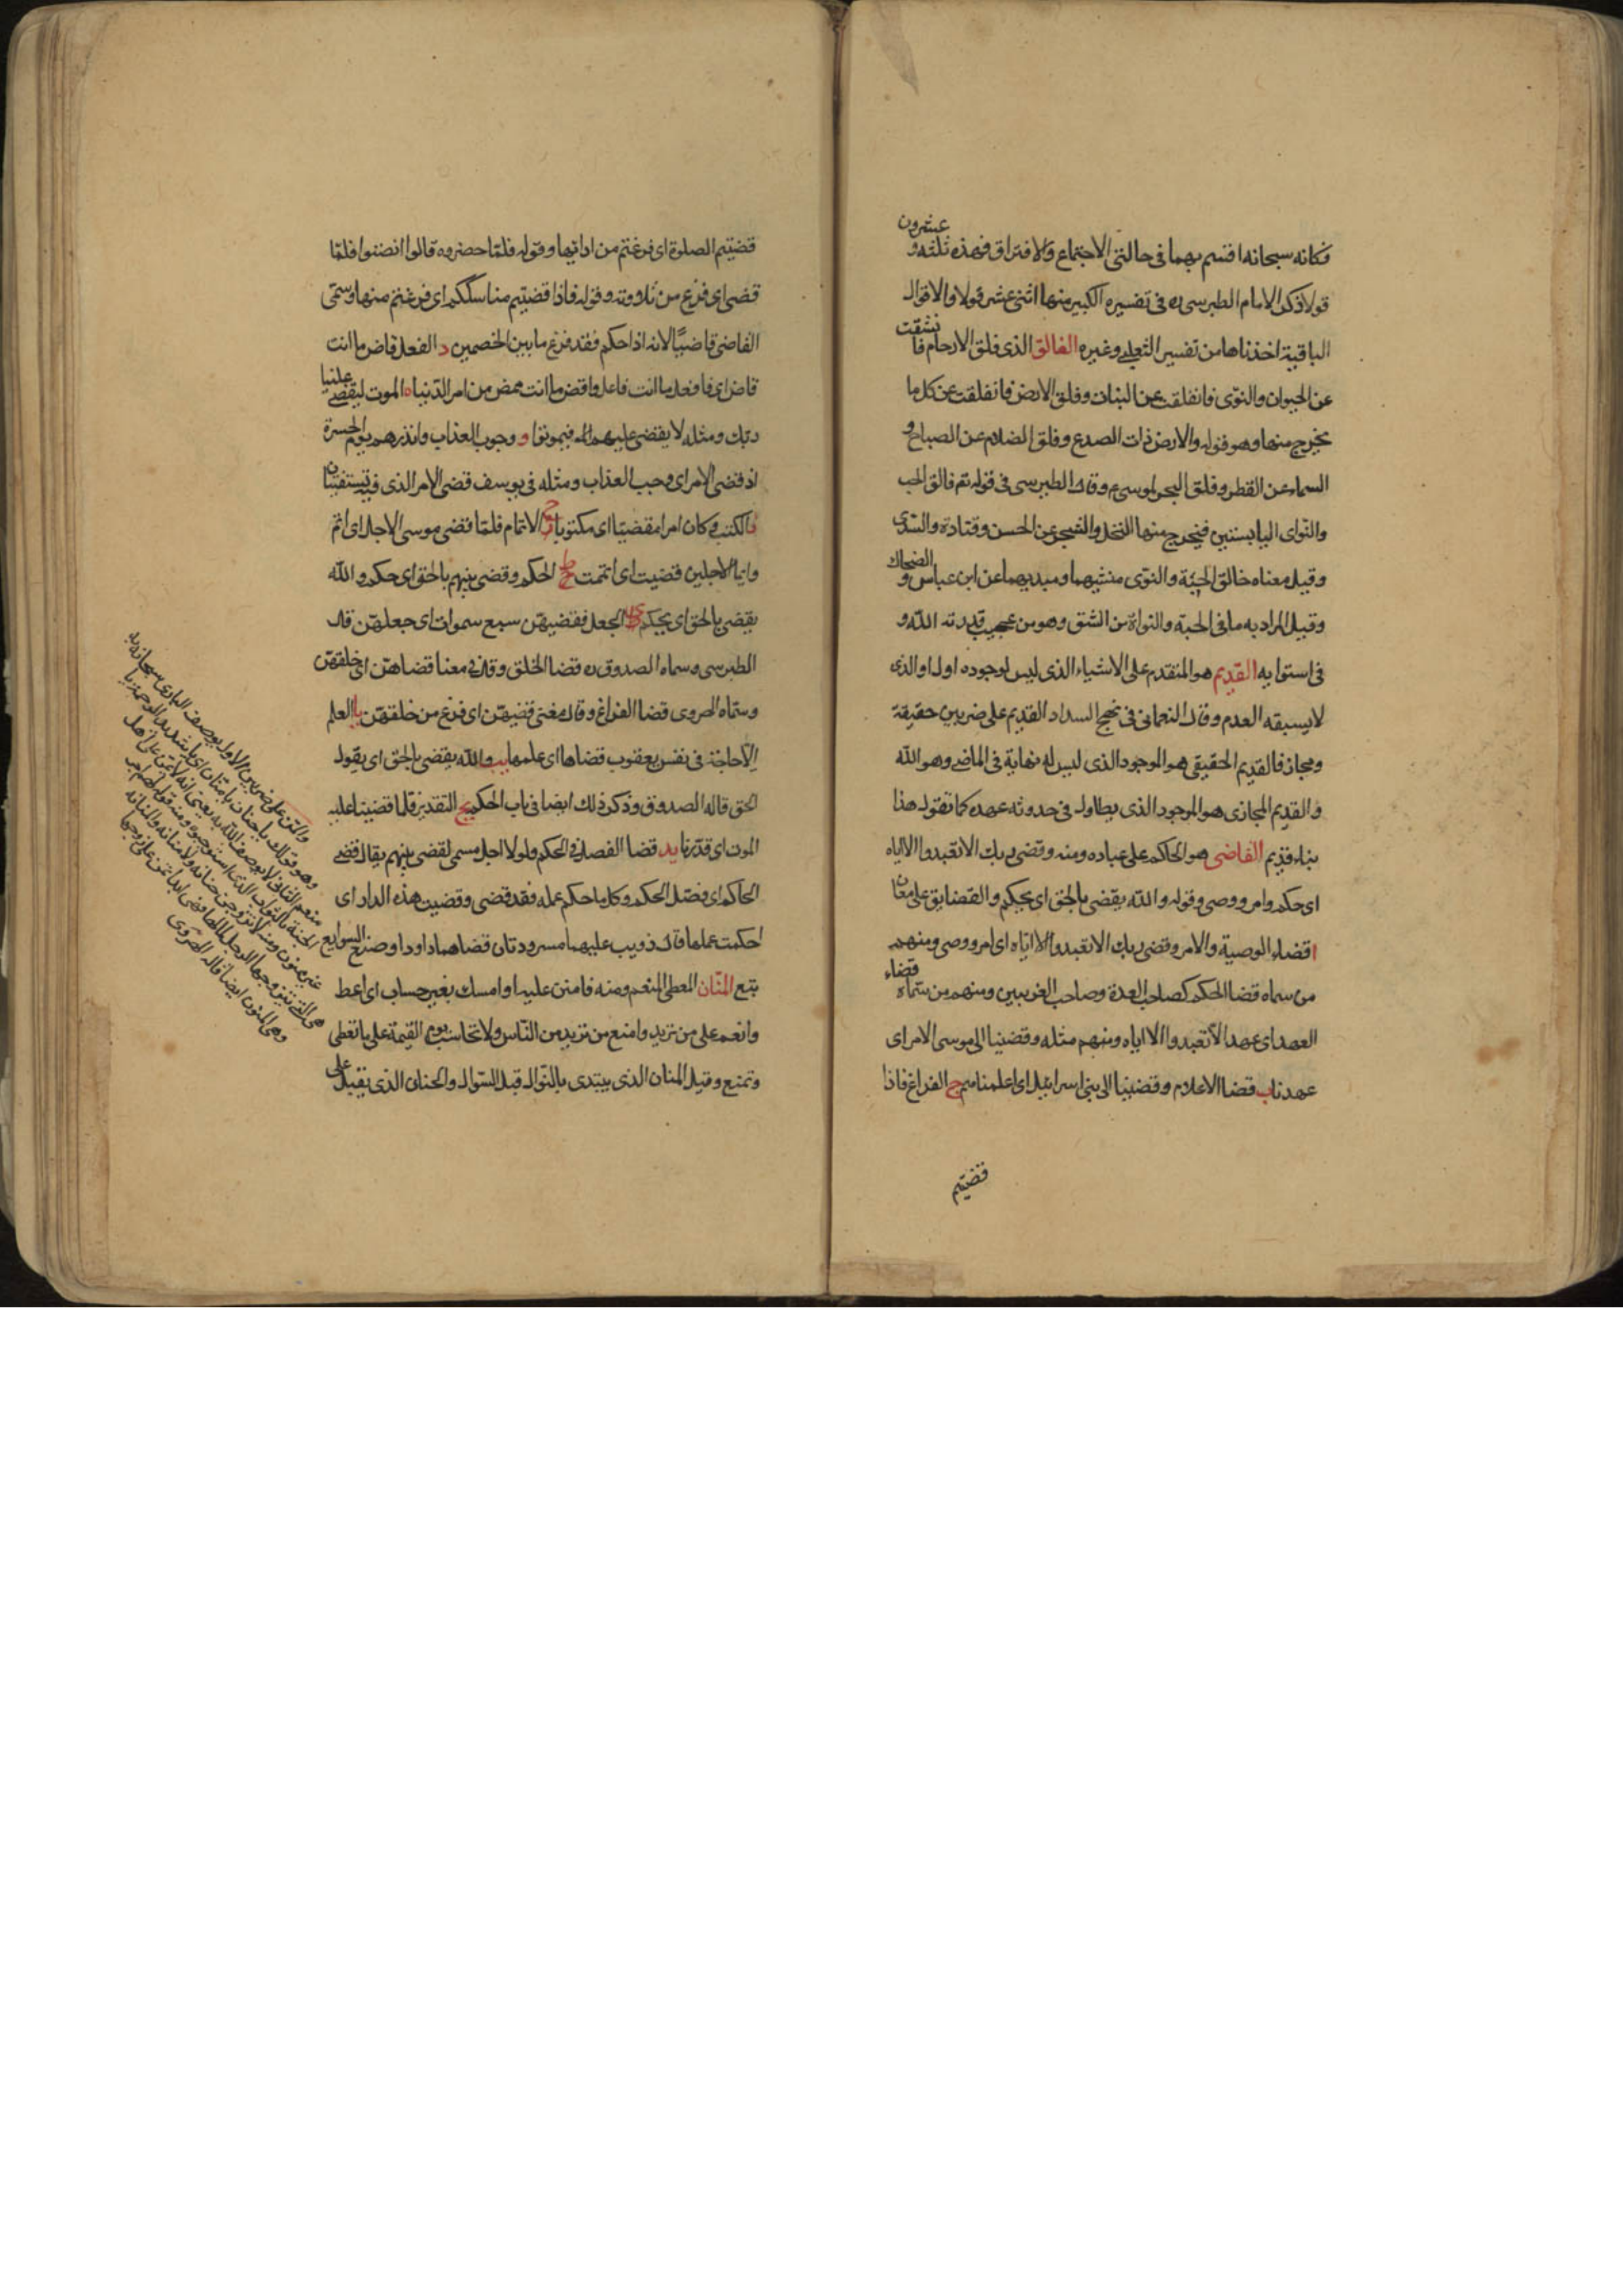 فكانه سبحانه اقسم بهما فى حالتى الاجتماع والافتراق فهذه ثلثه و عشرون
قولا ذكر الامام الطبرسى ره فى تفسيره الكبير منها اثنى عشر قولا والاقوال
الباقية اخذناها من تفسير الثعلبى وغيره الفالق الذى فلق الارحام فانشقت
عن الحيوان والنوى فانفلقت عن النبات وفلق الارض فانفلقت عن كل ما
يخرج منها وهو قوله والارض ذات الصدع وفلق الضلام عن الصباح و
السماء عن القطر وفلق البحر لموسى ع وقال الطبرسى فى قوله تع فالق الحب
والنواى اليابستين فيخرج منها النخل والشجر عن الحسن وقتادة والسدى
وقيل معناه خالق الحبة والنوى منشيهما ومبديهما عن ابن عباس و الضحاك
وقيل المراد به ما فى الحبة والنواة من الشق وهو من عجيب قدرته الله و
فى استوايه القديم هو المتقدم على الاشياء الذى ليس لوجوده اول او الذى
لا يسبقه العدم وقال النعمانى فى نهج السداد القديم على ضربين حقيقة
ومجاز فالقديم الحقيقى هو الموجود الذى ليس له نهاية فى الماضى وهو الله
والقديم المجازى هو الموجود الذى يطاول فى حدوثه عهده كما تقول هذا
بناء قديم القاضى هو الحاكم على عباده ومنه وقضى ربك الا تعبدوا الا اياه
اى حكم وامر ووصى وقوله والله يقضى بالحق اى يحكم والقضا يق على معان
ا قضاء الوصية والامر وقضى ربك الا تعبدوا الا اياه اى امر ووصى ومنهم
من سماه قضا الحكم كصاحب العدة وصاحب الغريبين ومنهم من سماه قضاء
العهد اى عهد الا تعبدوا الا اياه ومنهم مثله وقضينا الى موسى الامر اى
عهدنا ب قضا الاعلام وقضينا الى بنى اسرائيل اى اعلمناهم ج الفراغ فاذا
قضيتم
قضيتم الصلوة اى فرغتم من ادائها وقوله فلما حضروه قالوا انصتوا فلما
قضى اى فرغ من تلاوته وقوله فاذا قضيتم مناسككم اى فرغتم منها وسمى
القاضى قاضيا لانه اذا حكم فقد فرغ ما بين الخصمين د الفعل قاض ما انت
قاض اى فافعل ما انت فاعل واقض ما انت ممض من امر الدنيا ه الموت ليقض علينا
ربك ومثله لا يقضى عليهم اى فيموتوا و وجوب العذاب وانذرهم يوم الحسرة
اذ قضى الامر اى وجب العذاب ومثله فى يوسف قضى الامر الذى فيه تستفتيان
ز الكتب وكان امرا مقضيا اى مكتوبا ح الاتمام فلما قضى موسى الاجل اى اتم
وايما الاجلين قضيت اى اتممت ط الحكم وقضى بينهم بالحق اى حكم والله
يقضى بالحق اى يحكم ى الجعل فقضيهن سبع سموات اى جعلهن قال
الطبرسى وسماه الصدوق ره قضا الخلق وقال فى معنا قضاهن اى خلقهن
وسماه الهروى قضا الفراغ وقال معنى قضيهن اى فرغ من خلقهن يا العلم
الا حاجة فى نفس يعقوب قضاها اى علمها يب والله يقضى بالحق اى يقول
الحق قاله الصدوق وذكر ذلك ايضا فى باب الحكم يج التقدير فلما قضينا عليه
الموت اى قدرنا يد قضا الفصل فى الحكم ولولا اجل مسمى لقضى بينهم يقال قضى
الحاكم اى فصل الحكم وكل ما حكم عمله فقد قضى وقضيت هذه الدار اى
احكمت عملها قال ذويب عليهما مسرودتان قضاهما داود او صنع السوابغ
تبع المنان المعطى المنعم ومنه فامنن علينا وامسك بغير حساب اى اعط
وانعم على من تريد وامنع من تريد من الناس ولا تحاسب يوم القيمة على ما تعطى
وتمنع وقيل المنان الذى يبتدى بالنوال قبل السوال والحنان الذى يقبل على
والمن على ضربين الاول يوصف البارى سبحانه به
وهو قولك يا حنان يا منان اى يا شديد الرحمة يا
منعم الثانى لا يوصف الله به يعنى انه لا يمن على اهل
الجنة بالثواب الذى استوجبوه ومنه قوله لهم اجر
غير ممنون ومنه لا تتزوجن حنانة ولا منانة والمنانة
هى التى تتزوجها الرجل لمالها فهى ابدا تمن على زوجها
وهى المنون ايضا قاله الهروى